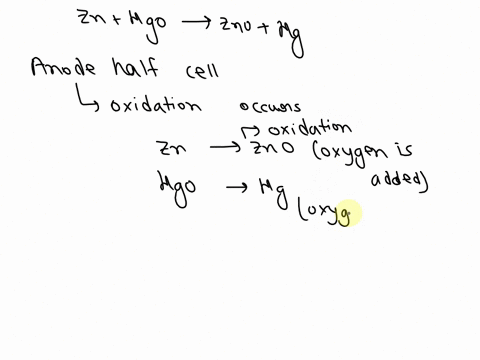 Zn + HgO → ZnO + Hg
Anode half cell
↳ oxidation occurs
↱ oxidation
Zn → ZnO (oxygen is
added)
HgO → Hg
(oxyg